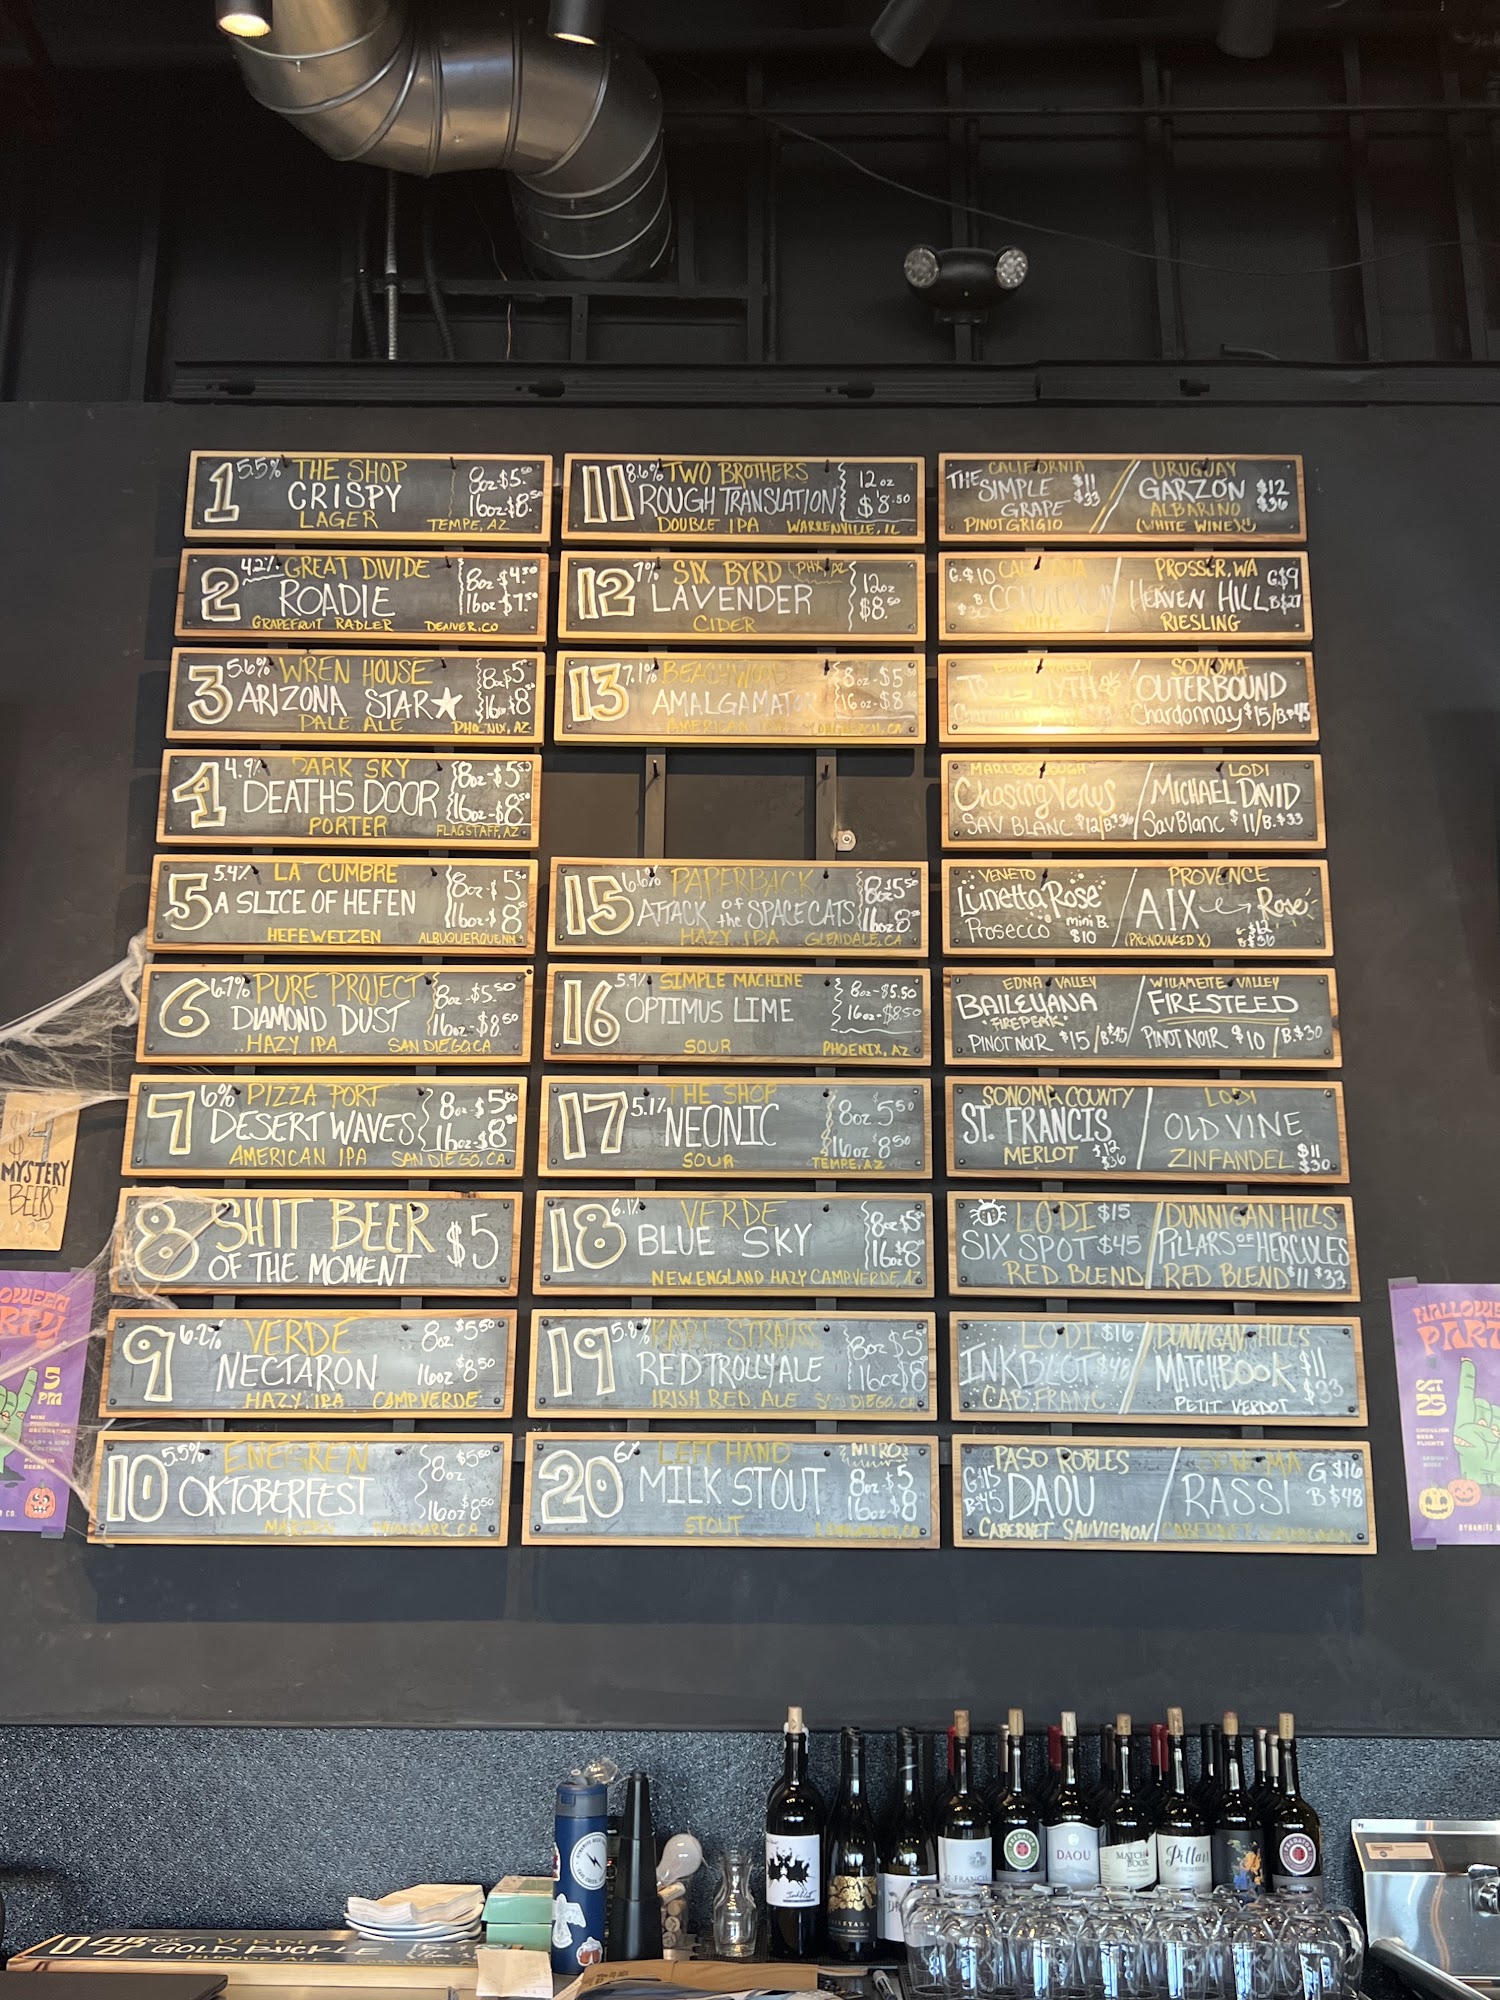 1 5.5% THE SHOP 8oz $5.50
CRISPY 16oz $8.50
LAGER TEMPE, AZ
2 4.2% GREAT DIVIDE 8oz $4.50
ROADIE 16oz $7.50
GRAPEFRUIT RADLER DENVER, CO
3 5.6% WREN HOUSE 8oz $5
ARIZONA STAR 16oz $8
PALE ALE PHOENIX, AZ
4 4.9% DARK SKY 8oz-$5.50
DEATHS DOOR 16oz-$8
PORTER FLAGSTAFF, AZ
5 5.4% LA CUMBRE 8oz-$5.50
A SLICE OF HEFEN 16oz-$8.50
HEFEWEIZEN ALBUQUERQUE NM
6 6.7% PURE PROJECT 8oz-$5.50
DIAMOND DUST 16oz-$8.50
HAZY IPA SAN DIEGO, CA
7 6% PIZZA PORT 8oz-$5.50
DESERT WAVES 16oz-$8
AMERICAN IPA SAN DIEGO, CA
8 SHIT BEER $5
OF THE MOMENT
9 6.2% VERDE 8oz $5.50
NECTARON 16oz $8.50
HAZY IPA CAMP VERDE
10 5.5% ENEGREN $5.50
OKTOBERFEST 8oz
16oz $8.50
MOORPARK, CA
11 8.6% TWO BROTHERS 12oz
ROUGH TRANSLATION $8.50
DOUBLE IPA WARRENVILLE, IL
12 7% SIX BYRD PHX, AZ 12oz
LAVENDER $8.50
CIDER
13 7.1% BEACHWOOD 8oz-$5.50
AMALGAMATOR 16oz-$8.50
AMERICAN IPA LONG BEACH, CA
15 6.6% PAPERBACK 8oz $5.50
ATTACK of the SPACE CATS 16oz 8.50
HAZY IPA GLENDALE, CA
16 5.9% SIMPLE MACHINE 8oz-$5.50
OPTIMUS LIME 16oz-$8.50
SOUR PHOENIX, AZ
17 5.1% THE SHOP 8oz 5.50
NEONIC 16oz $8.50
SOUR TEMPE, AZ
18 6.1% VERDE 8oz $5.50
BLUE SKY 16oz $8
NEW ENGLAND HAZY CAMP VERDE, AZ
19 5.8% KARL STRAUSS 8oz $5.50
RED TROLLY ALE 16oz $8
IRISH RED ALE SAN DIEGO, CA
20 6% LEFT HAND NITRO
MILK STOUT 8oz-$5
16oz-$8
STOUT LONGMONT, CO
CALIFORNIA
THE SIMPLE GRAPE $11 $33
PINOT GRIGIO
URUGUAY
GARZÓN $12 $36
ALBARINO
(WHITE WINE)
G.$10 CALIFORNIA
B.$30 CONUNDRUM
WHITE
PROSSER, WA G$9
HEAVEN HILL B$27
RIESLING
EDNA VALLEY
TRUE MYTH
Chardonnay
SONOMA
OUTERBOUND
Chardonnay $15/B.$45
MARLBOROUGH
Chasing Venus
SAV BLANC $12/B.$36
LODI
MICHAEL DAVID
Sav Blanc $11/B.$33
VENETO
Lunetta Rose
Prosecco mini B. $10
PROVENCE
AIX Rosé
(PRONOUNCED X) G $12 B $36
EDNA VALLEY
BAILEYANA
"FIREPEAK"
PINOT NOIR $15/B.$45
WILLAMETTE VALLEY
FIRESTEED
PINOT NOIR $10/B.$30
SONOMA COUNTY
ST. FRANCIS
MERLOT $12 $36
LODI
OLD VINE
ZINFANDEL $11 $30
LODI $15
SIX SPOT $45
RED BLEND
DUNNIGAN HILLS
PILLARS OF HERCULES
RED BLEND $11 $33
LODI $16
INKBLOT $48
CAB FRANC
DUNNIGAN HILLS
MATCHBOOK $11 $33
PETIT VERDOT
PASO ROBLES
G.$15 B.$45 DAOU
CABERNET SAUVIGNON
SONOMA G $16
RASSI B $48
CABERNET SAUVIGNON
$4
MYSTERY
BEERS
5 PM
HALLOWEEN
PARTY
OCT 25
ST. FRANCIS
PREDATOR
DAOU
MATCHBOOK
Pillars
PREDATOR
14 VERDE
GOLD BUCKLE